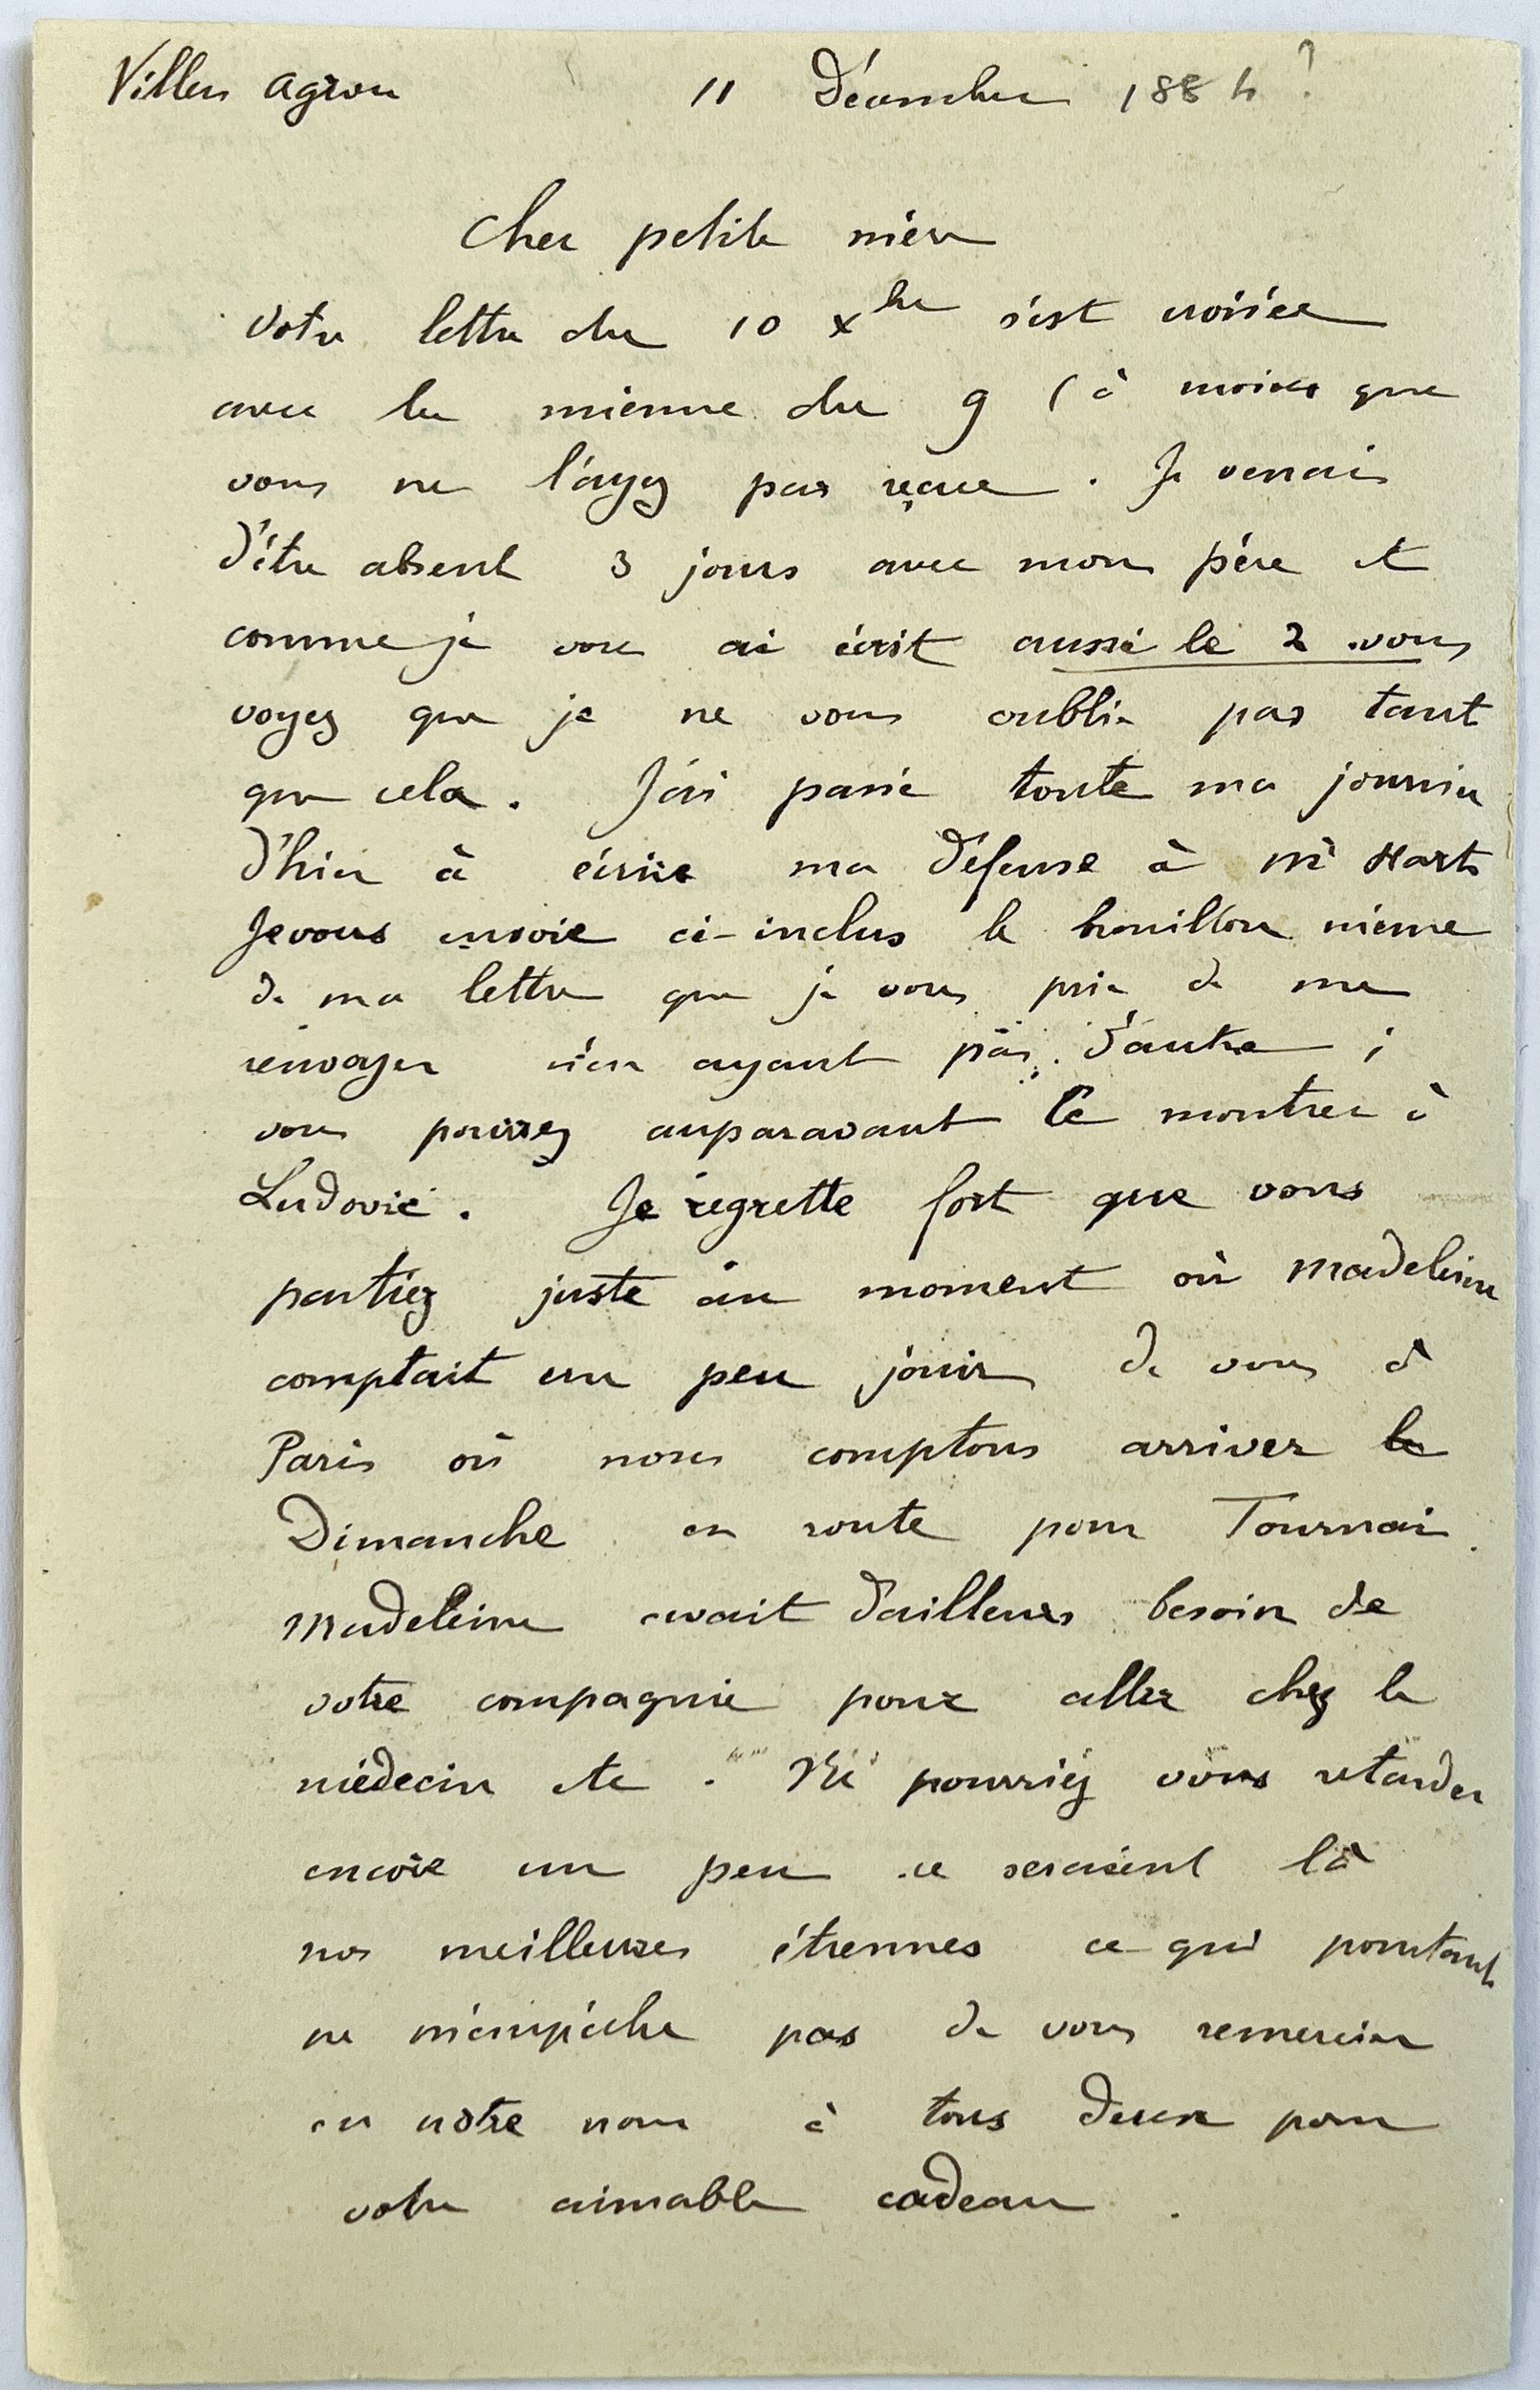 Villers Agron 11 Décembre 1884 ?
Cher petite mère
Votre lettre du 10 xbre s'est croisée
avec la mienne du 9 (à moins que
vous ne l'ayez pas reçue. Je venais
d'être absent 3 jours avec mon père et
comme je vous ai écrit aussi le 2 vous
voyez que je ne vous oublie pas tant
que cela. J'ai passé toute ma journée
d'hier à écrire ma défense à Mr
Je vous envoie ci-inclus le brouillon même
de ma lettre que je vous prie de me
renvoyer n'en ayant pas d'autre ;
vous pouvez auparavant le montrer à
Ludovic. Je regrette fort que vous
partiez juste au moment où Madeleine
comptait un peu jouir de vous à
Paris où nous comptons arriver le
Dimanche en route pour Tournai.
Madeleine avait d'ailleurs besoin de
votre compagnie pour aller chez le
médecin etc. Ne pourriez vous retarder
encore un peu ce seraient là
nos meilleures étrennes ce qui pourtant
ne m'empêche pas de vous remercier
en notre nom à tous deux pour
votre aimable cadeau.